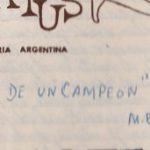 RIA ARGENTINA
DE UN CAMPEON"
M.